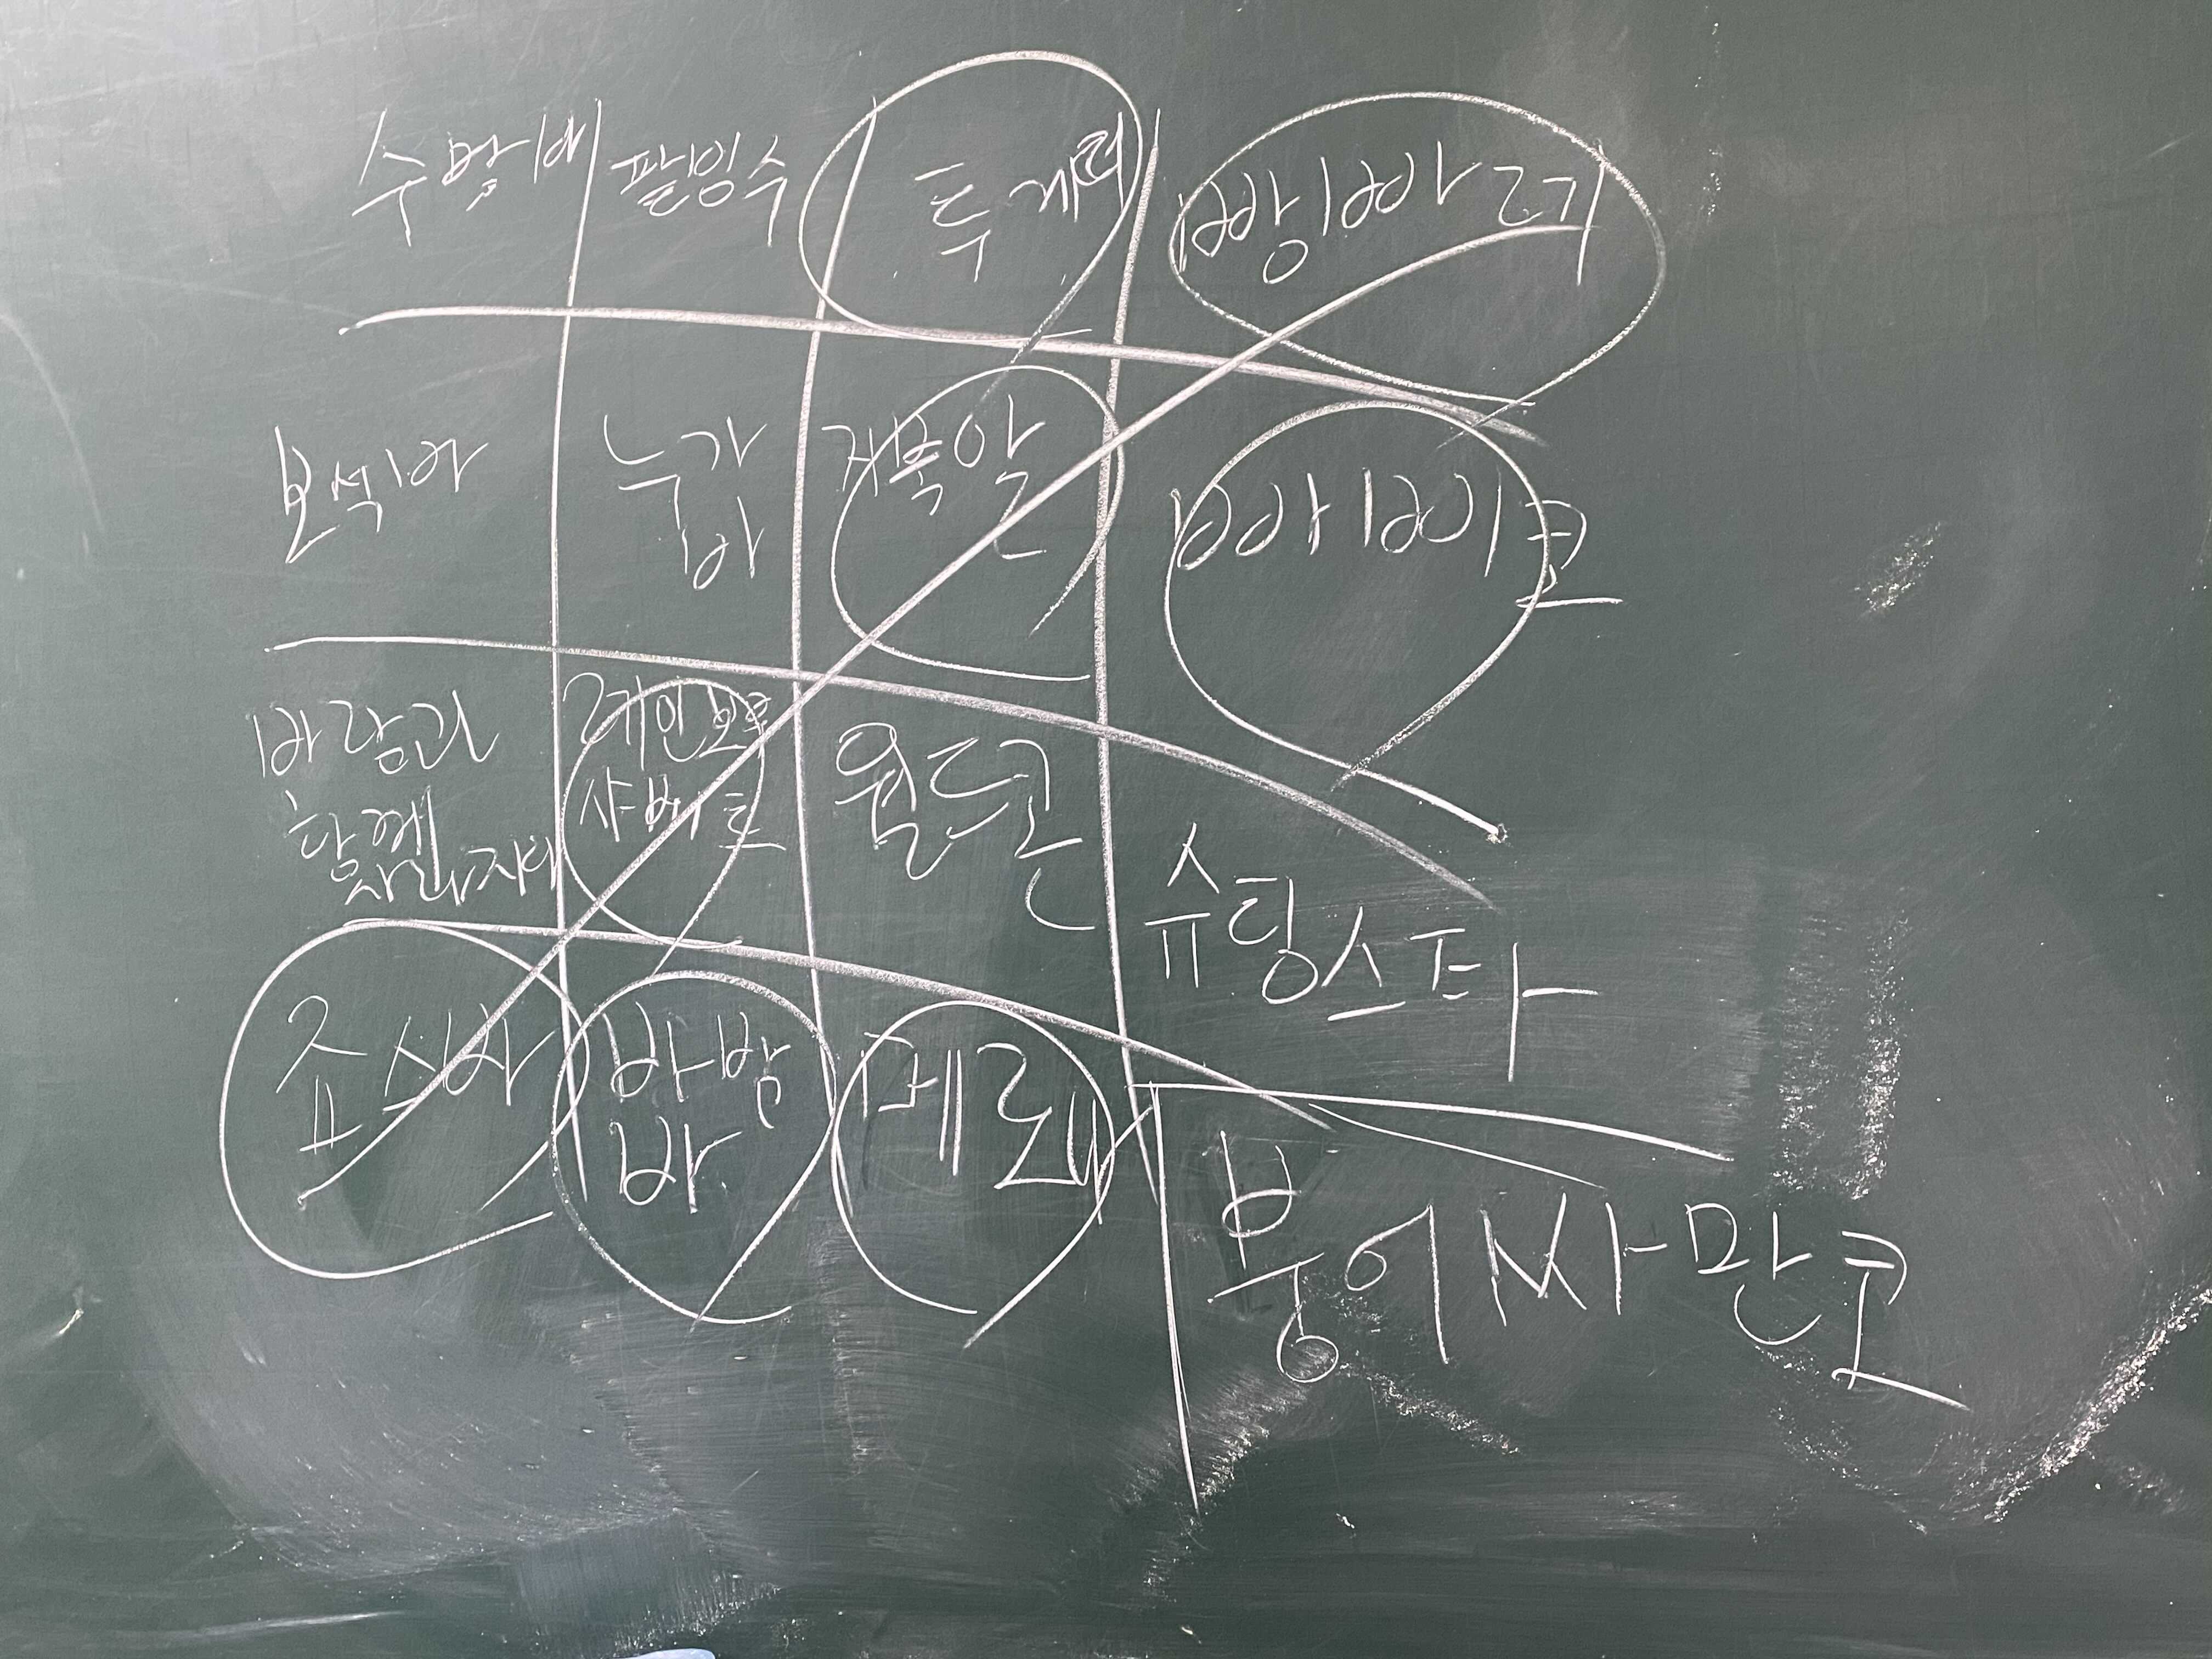 수박바 팥빙수 투게더 빵빠레
보석바 누가 거북알 빠삐코
바
바람과 레인보우 월드콘
함께 사라지다 샤베트
슈팅스타
죠스바 바밤 메로나
바
붕어싸만코